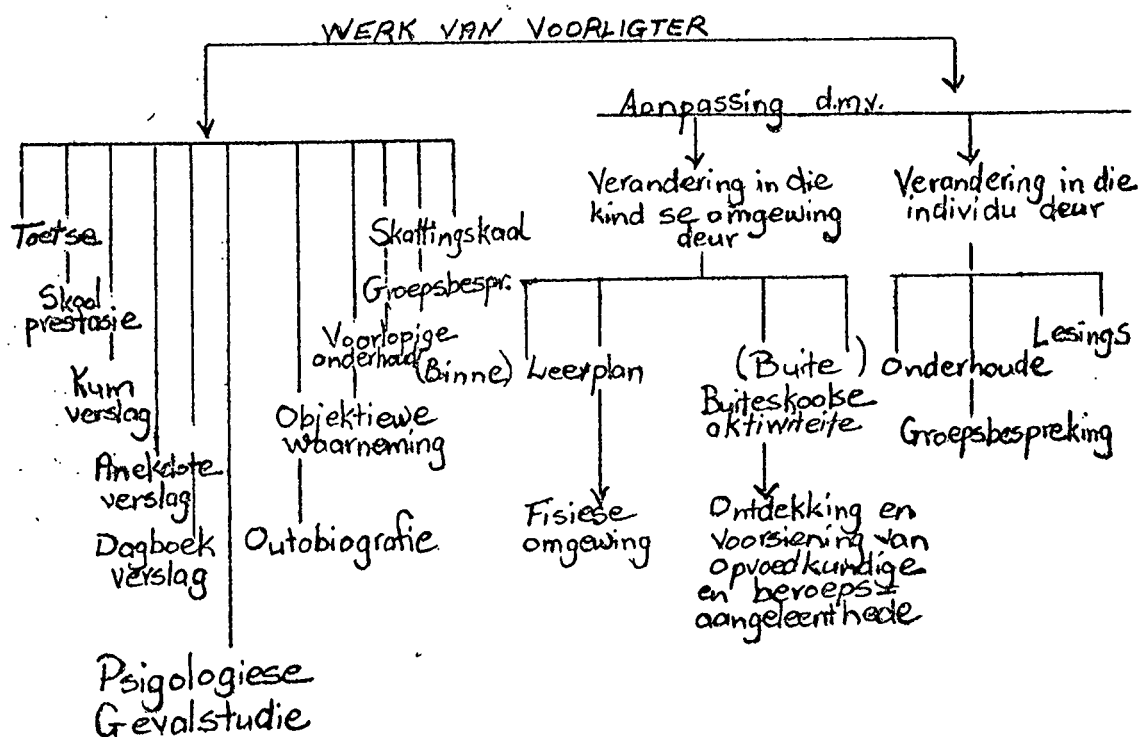 WERK VAN VOORLIGTER
Aanpassing d.m.v.
Toetse
Skool
prestasie
Kum
verslag
Anekdote
verslag
Dagboek
verslag
Psigologiese
Gevalstudie
Outobiografie
Objektiewe
waarneming
Voorlopige
onderhoud
Groepsbespr.
Skattingskaal
Verandering in die
kind se omgewing
deur
(Binne) Leerplan
Fisiese
omgewing
(Buite)
Buiteskoolse
aktiwiteite
Ontdekking en
voorsiening van
opvoedkundige
en beroeps=
aangeleenthede
Verandering in die
individu deur
Onderhoude
Groepsbespreking
Lesings